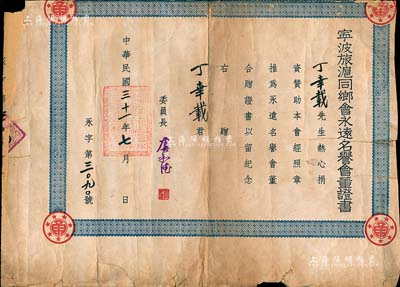 寧波旅滬同鄉會永遠名譽會董證書
丁幸載先生熱心捐
資贊助本會經照章
推為永遠名譽會董
合贈證書以留紀念
右贈
丁幸載君
委員長
中華民國三十一年七月 日
永字第三〇九〇號